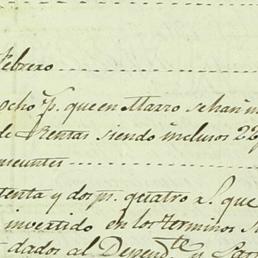 Febrero
ocho p.s que en Marzo se han
de Rentas siendo inclusos 22
tenta y dos p.s quatro r.s que
invertido en los terminos
dados al Depend.te